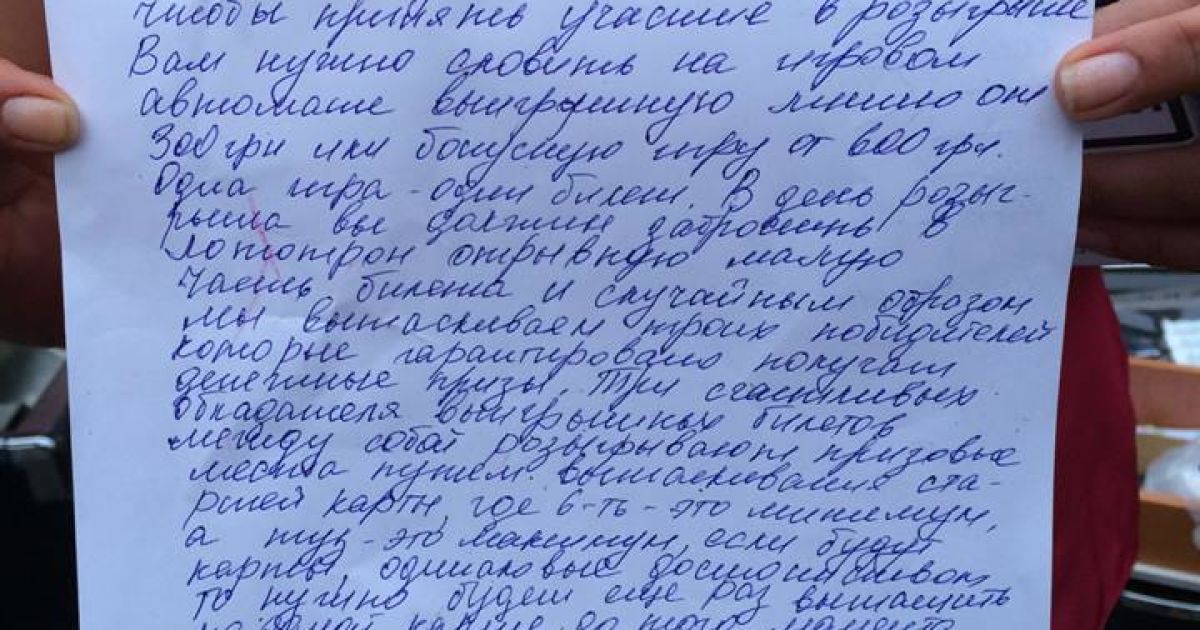 Чтобы принять участие в розыгрыше
Вам нужно словить на игровом
автомате выигрышную линию от
300 грн или бонусную игру от 600 грн.
Одна игра - один билет. В день розыг-
рыша вы должны забросить в
лототрон отрывную малую
часть билета и случайным образом
мы вытаскиваем троих победителей
которые гарантировано получат
денежные призы. Три счастливых
обладателя выигрышных билетов
между собой розыгрывают призовые
места путем вытаскивания ста-
ршей карты, где 6-ть - это минимум,
а туз - это максимум, если будут
карты одинаковые достоинством
то нужно будет еще раз вытащить
по одной карте до того момента